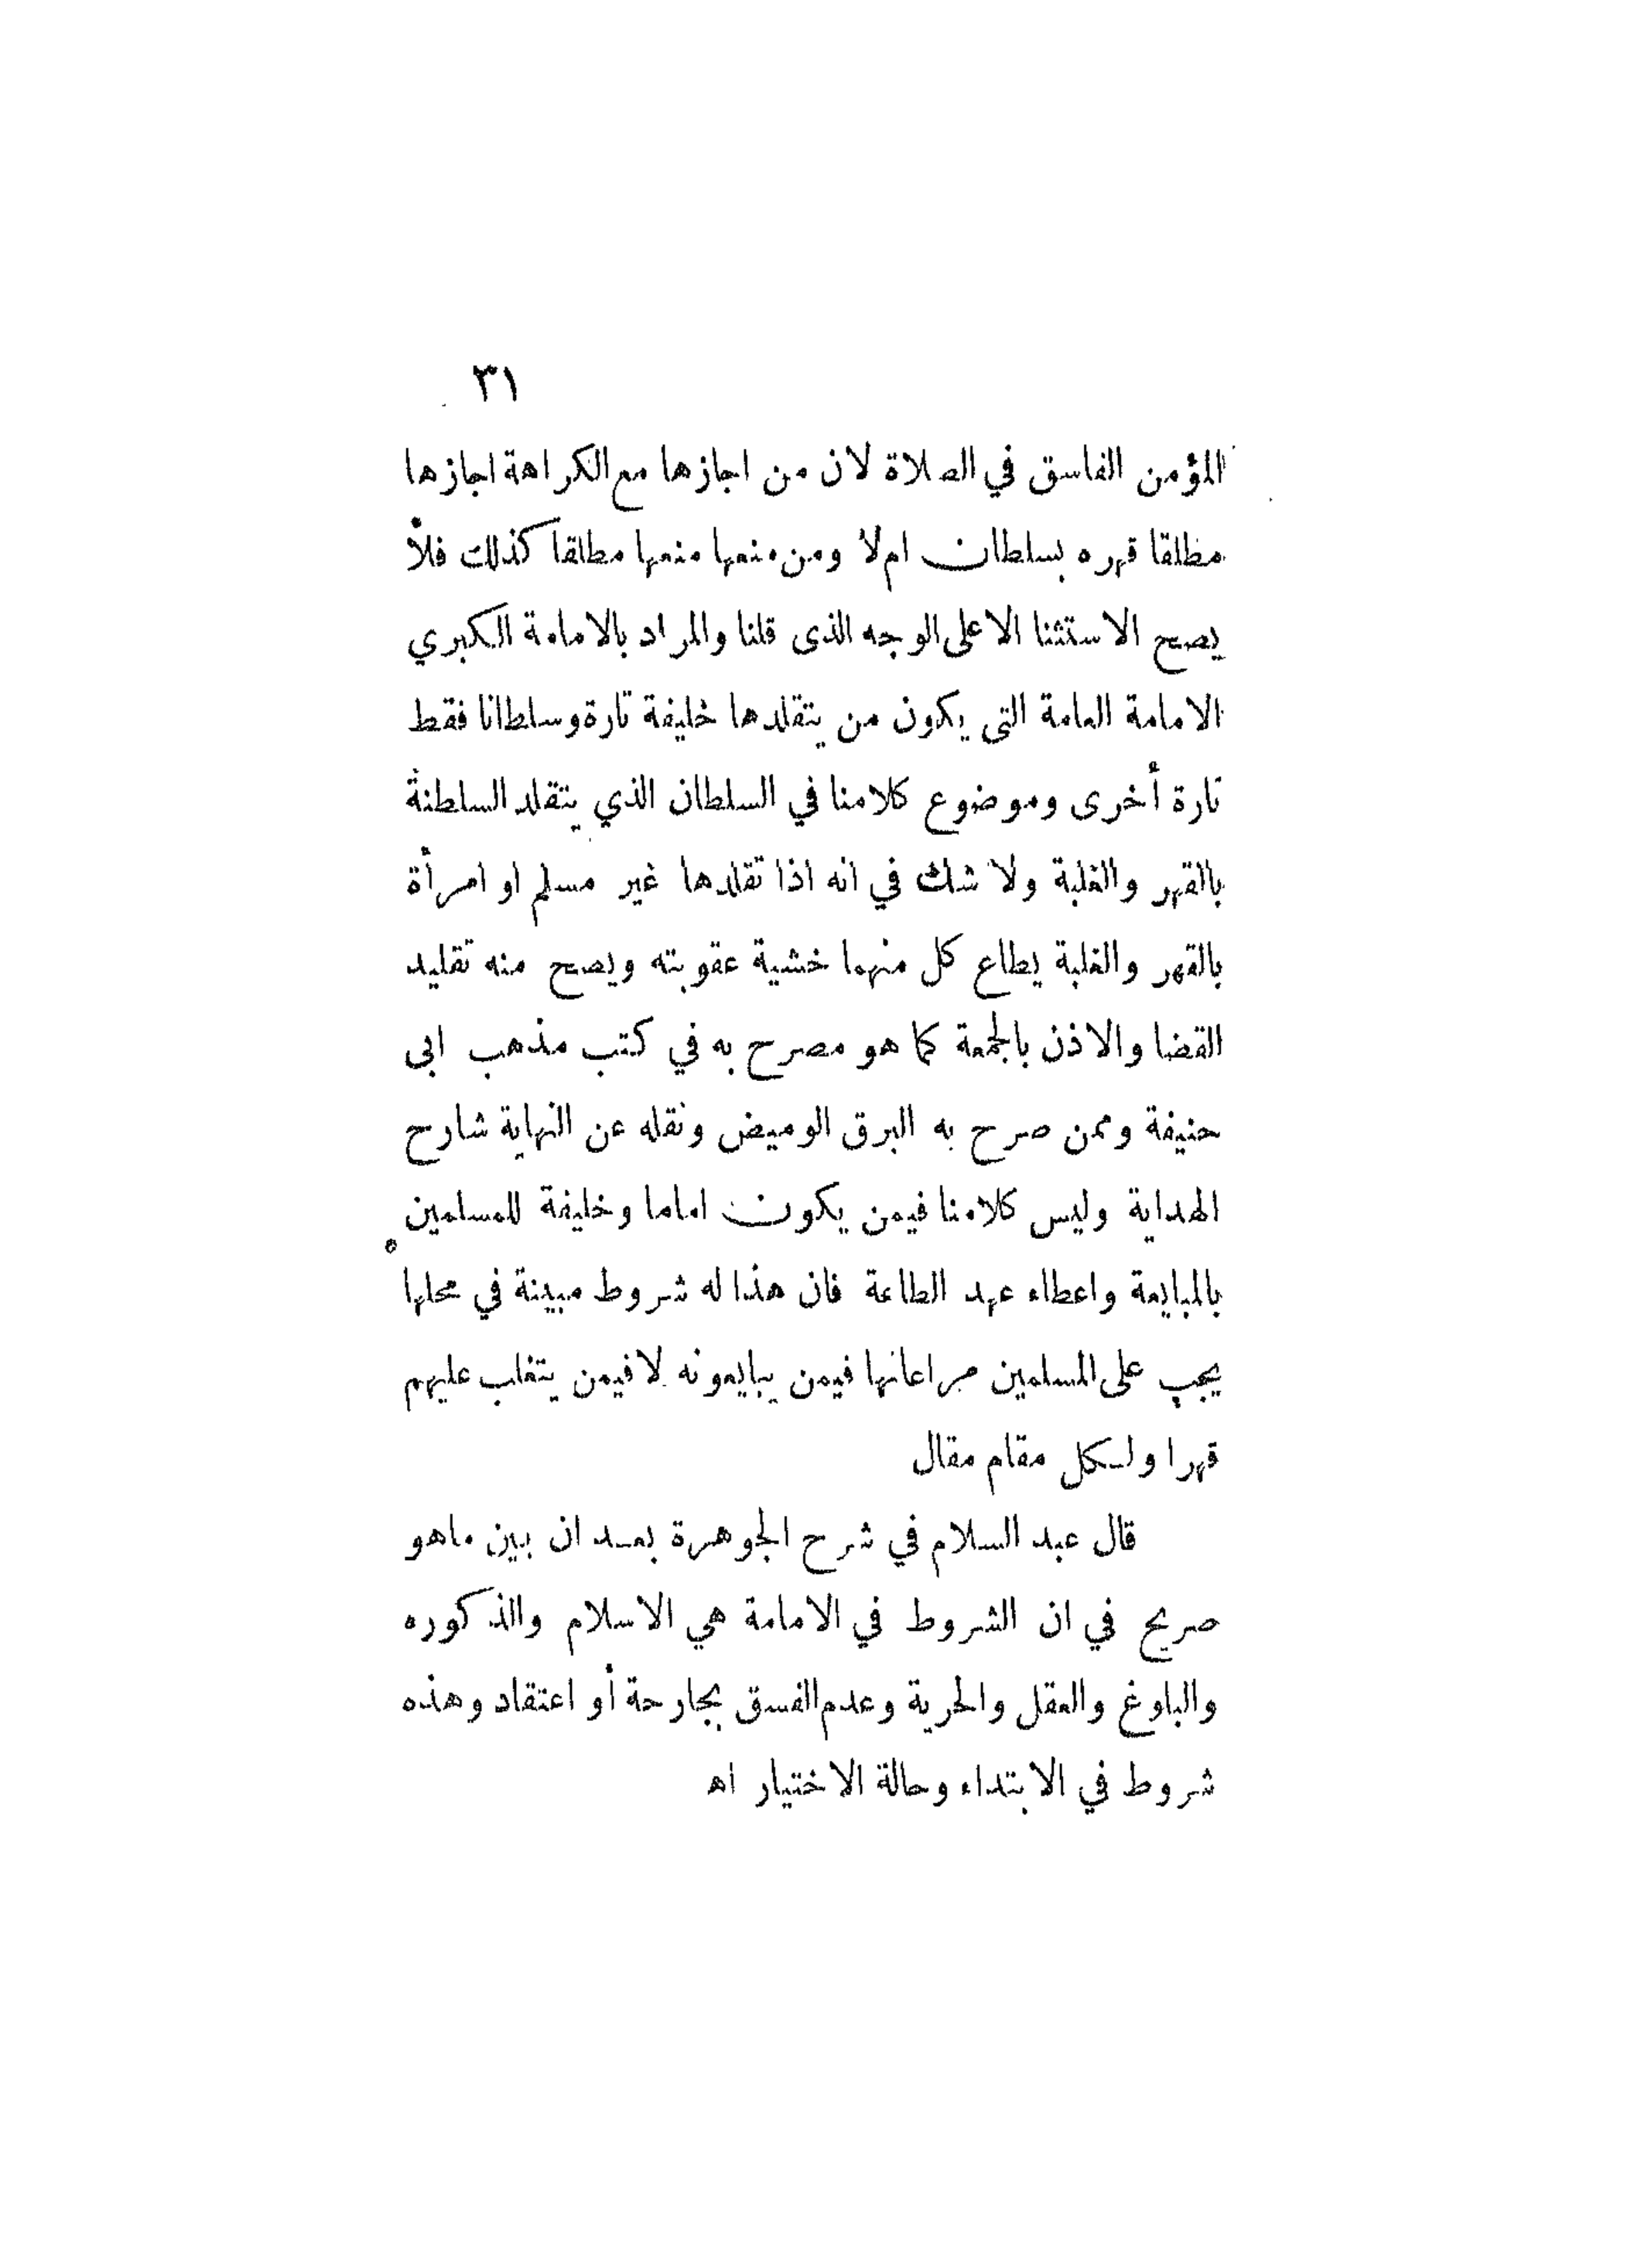 ٣١
المؤمن الفاسق في الصلاة لان من اجازها مع الكراهة اجازها
مطلقا قهره بسلطان ام لا ومن منعها منعها مطلقا كذلك فلا
يصح الاستثنا الا على الوجه الذى قلنا والمراد بالامامة الكبري
الامامة العامة التى يكون من يتقلدها خليفة تارة وسلطانا فقط
تارة أخرى وموضوع كلامنا في السلطان الذي يتقلد السلطنة
بالقهر والغلبة ولا شك في انه اذا تقلدها غير مسلم او امرأة
بالقهر والغلبة يطاع كل منهما خشية عقوبته ويصح منه تقليد
القضا والاذن بالجمعة كما هو مصرح به في كتب مذهب ابى
حنيفة وممن صرح به البرق الوميض ونقله عن النهاية شارح
الهداية وليس كلامنا فيمن يكون اماما وخليفة للمسلمين
بالمبايعة واعطاء عهد الطاعة فان هذا له شروط مبينة في محلها
يجب على المسلمين مراعاتها فيمن يبايعونه لا فيمن يتغلب عليهم
قهرا ولكل مقام مقال
قال عبد السلام في شرح الجوهرة بعد ان بين ماهو
صريح في ان الشروط في الامامة هي الاسلام والذكوره
والبلوغ والعقل والحرية وعدم الفسق بجارحة أو اعتقاد وهذه
شروط في الابتداء وحالة الاختيار اه